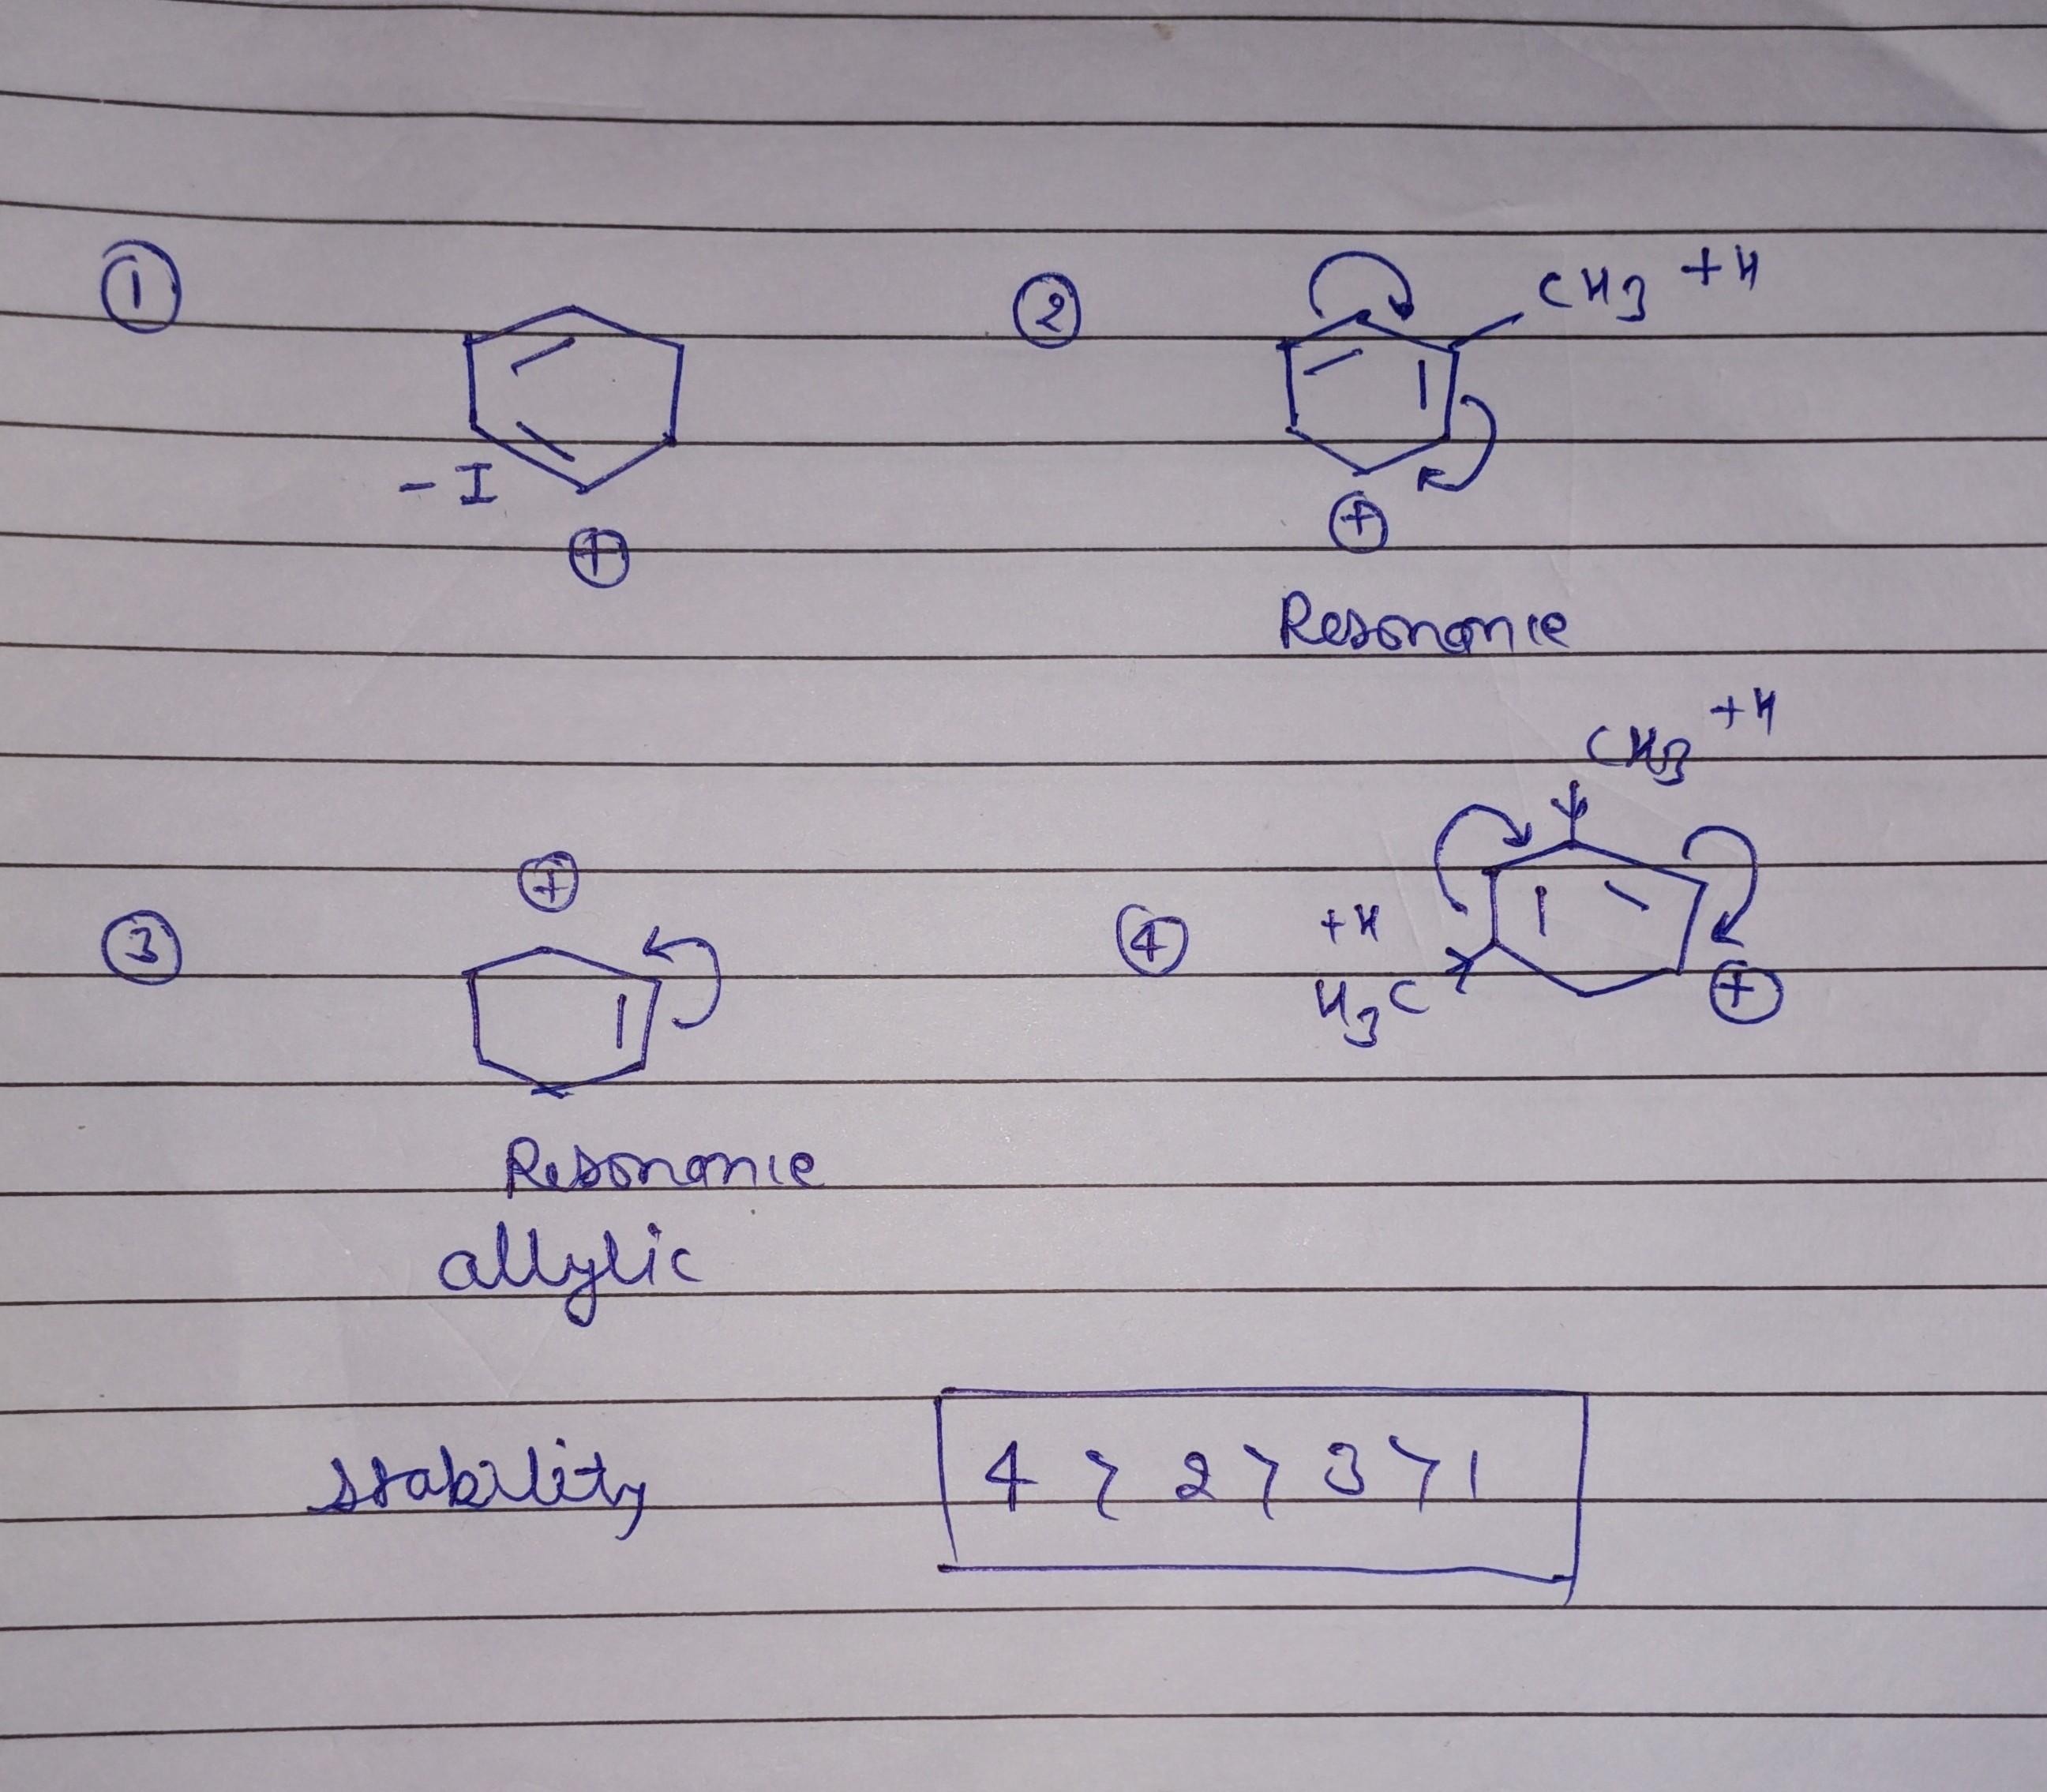 ① ② CH3 +H
- I
⊕ ⊕
Resonance
CH3 +H
⊕
③ ④ +H
H3C ⊕
Resonance
allylic
stability 4 > 2 > 3 > 1